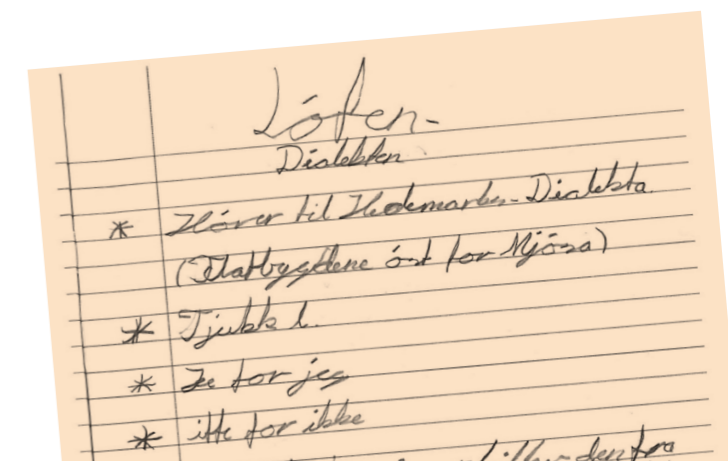 Lóten-
Dialekten
* Hórer til Hedemarks-Dialekta
(Flatbygdene óst for Mjósa)
* Tjukk l.
* Je for jeg
* itte for ikke
den fra